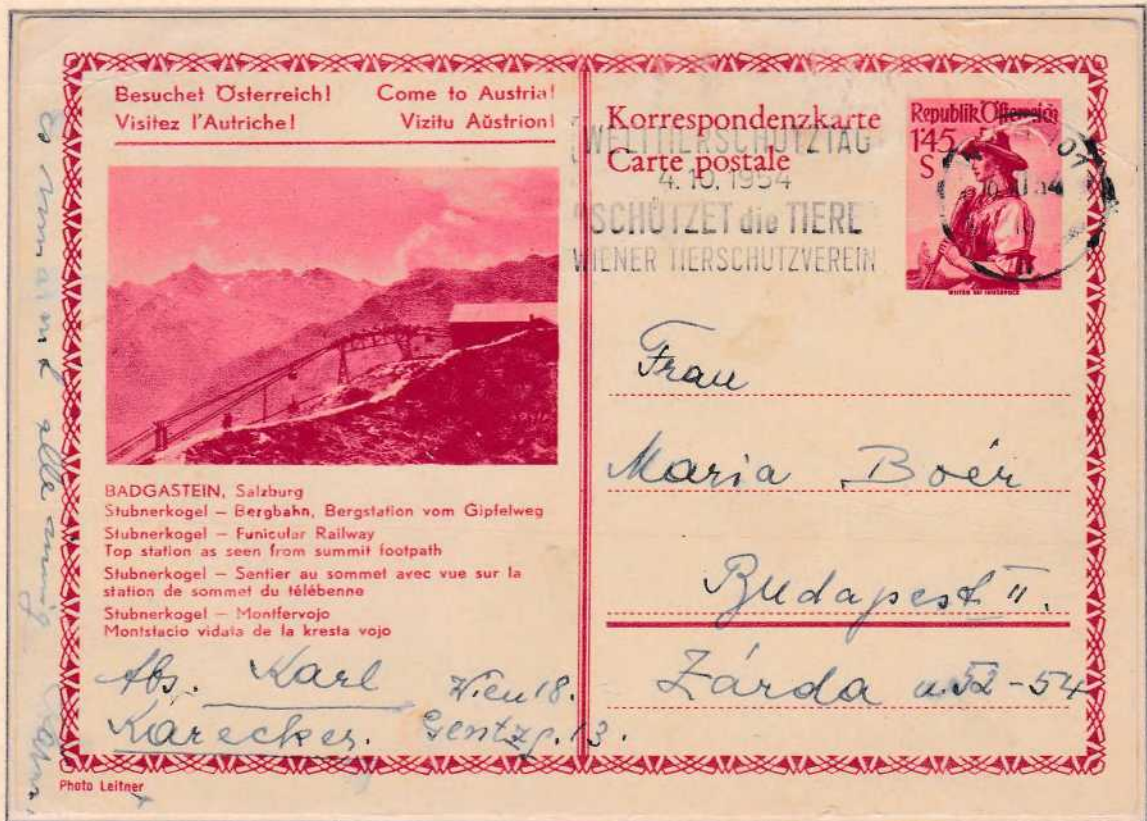 Besuchet Österreich! Come to Austria!
Visitez l'Autriche! Vizitu Aŭstrion!
BADGASTEIN, Salzburg
Stubnerkogel – Bergbahn, Bergstation vom Gipfelweg
Stubnerkogel – Funicular Railway
Top station as seen from summit footpath
Stubnerkogel – Sentier au sommet avec vue sur la
station de sommet du télébenne
Stubnerkogel – Montfervojo
Montstacio vidata de la kresta vojo
Abs. Karl Wien 18.
Karecker. Gentzg. 13.
Photo Leitner
Korrespondenzkarte
Carte postale
WELTTIERSCHUTZTAG
4.10.1954
"SCHÜTZET die TIERE"
WIENER TIERSCHUTZVEREIN
Republik Österreich
145
S
Frau
Maria Boér
Budapest II.
Zárda u. 52-54
alle